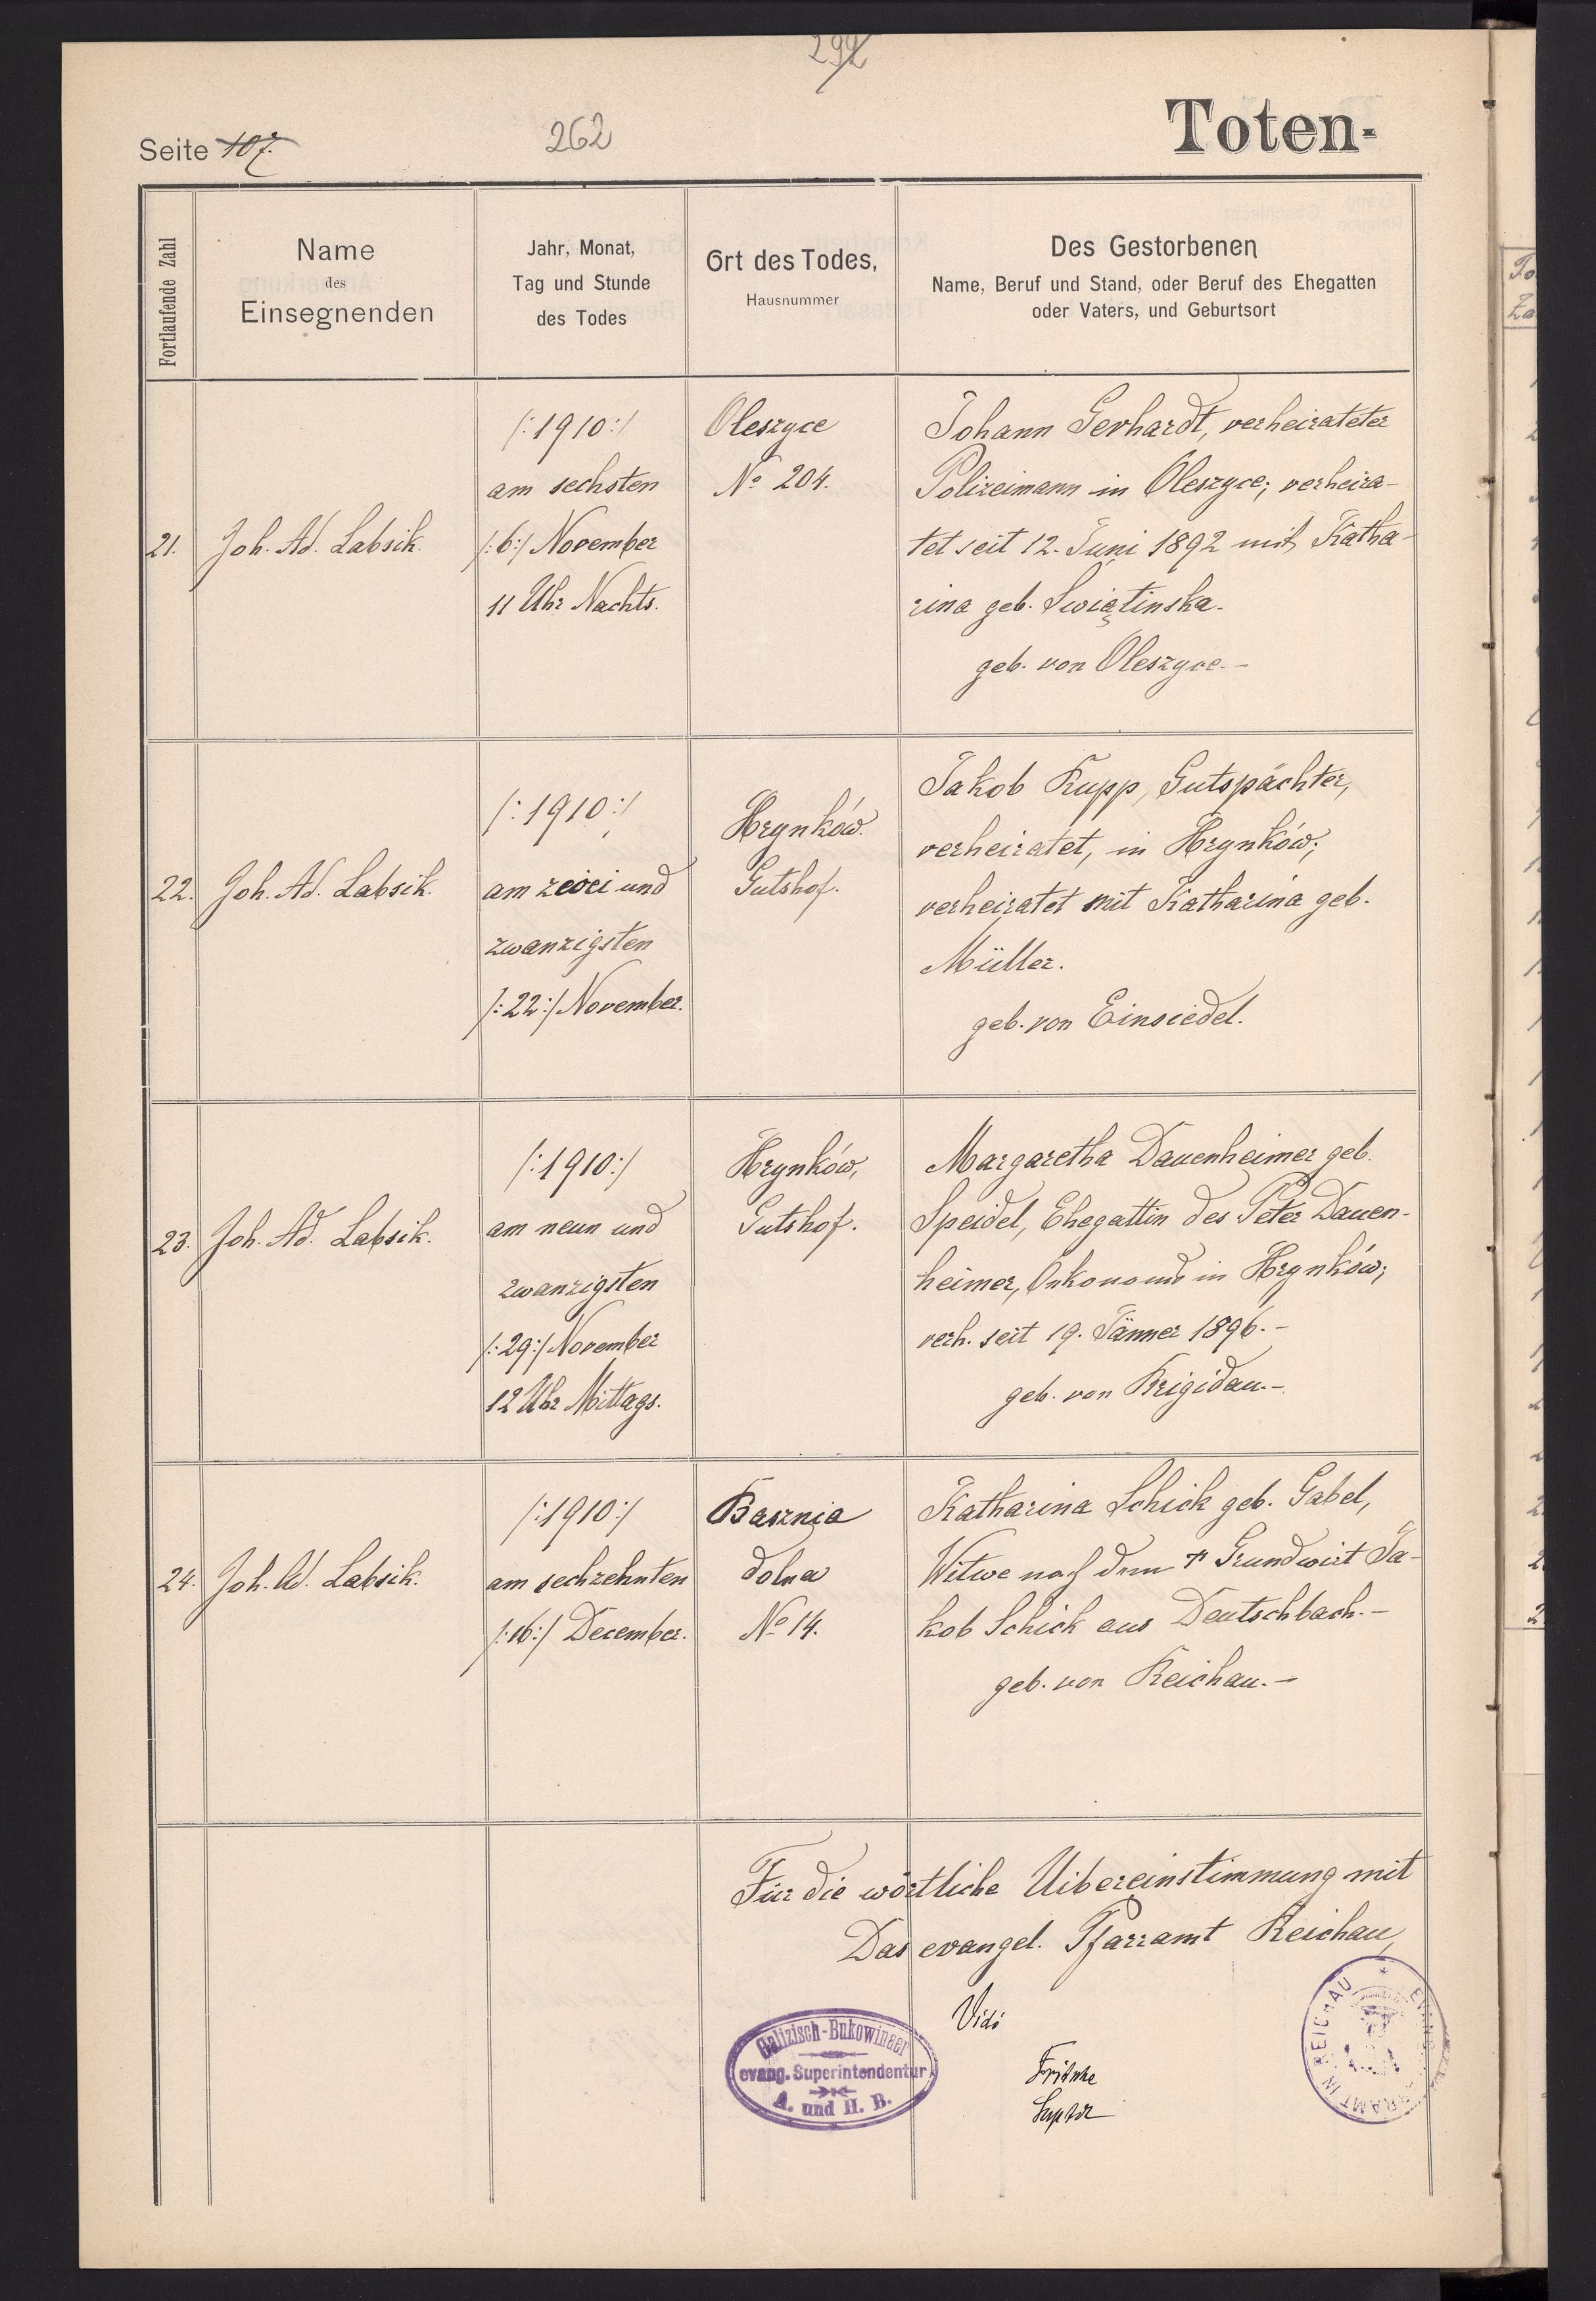 292
Seite 107.
262
Toten-
Fortlaufende Zahl
Name
des
Einsegnenden
Jahr, Monat,
Tag und Stunde
des Todes
Ort des Todes,
Hausnummer
Des Gestorbenen
Name, Beruf und Stand, oder Beruf des Ehegatten
oder Vaters, und Geburtsort
21.
Joh. Ad. Labsik.
/:1910:/
am sechsten
/:6:/ November
11 Uhr Nachts.
Oleszyce
No 204.
Johann Gerhardt, verheirateter
Polizeimann in Oleszyce; verheira-
tet seit 12. Juni 1892 mit Katha-
rina geb. Swiątinska.
geb. von Oleszyce.-
22.
Joh. Ad. Labsik.
/:1910:/
am zwei und
zwanzigsten
/:22:/ November.
Hrynków.
Gutshof.
Jakob Rupp, Gutspächter,
verheiratet, in Hrynków;
verheiratet mit Katharina geb.
Müller.
geb. von Einsiedel.
23.
Joh. Ad. Labsik.
/:1910:/
am neun und
zwanzigsten
/:29:/ November
12 Uhr Mittags.
Hrynków,
Gutshof.
Margaretha Dauenheimer geb.
Speidel, Ehegattin des Peter Dauen-
heimer, in Hrynków;
verh. seit 19. Jänner 1896.-
geb. von Brigidau.-
24.
Joh. Ad. Labsik.
/:1910:/
am sechzehnten
/:16:/ December.
Basznia
dolna
No 14.
Katharina Schick geb. Gabel,
Witwe nach dem † Grundwirt Ja-
kob Schick aus Deutschbach.-
geb. von Reichau.-
Für die wörtliche Uibereinstimmung mit
Das evangel. Pfarramt Reichau,
Vidi
Fritsche
Galizisch-Bukowinaer
evang. Superintendentur
A. und H. B.
IN REICHAU